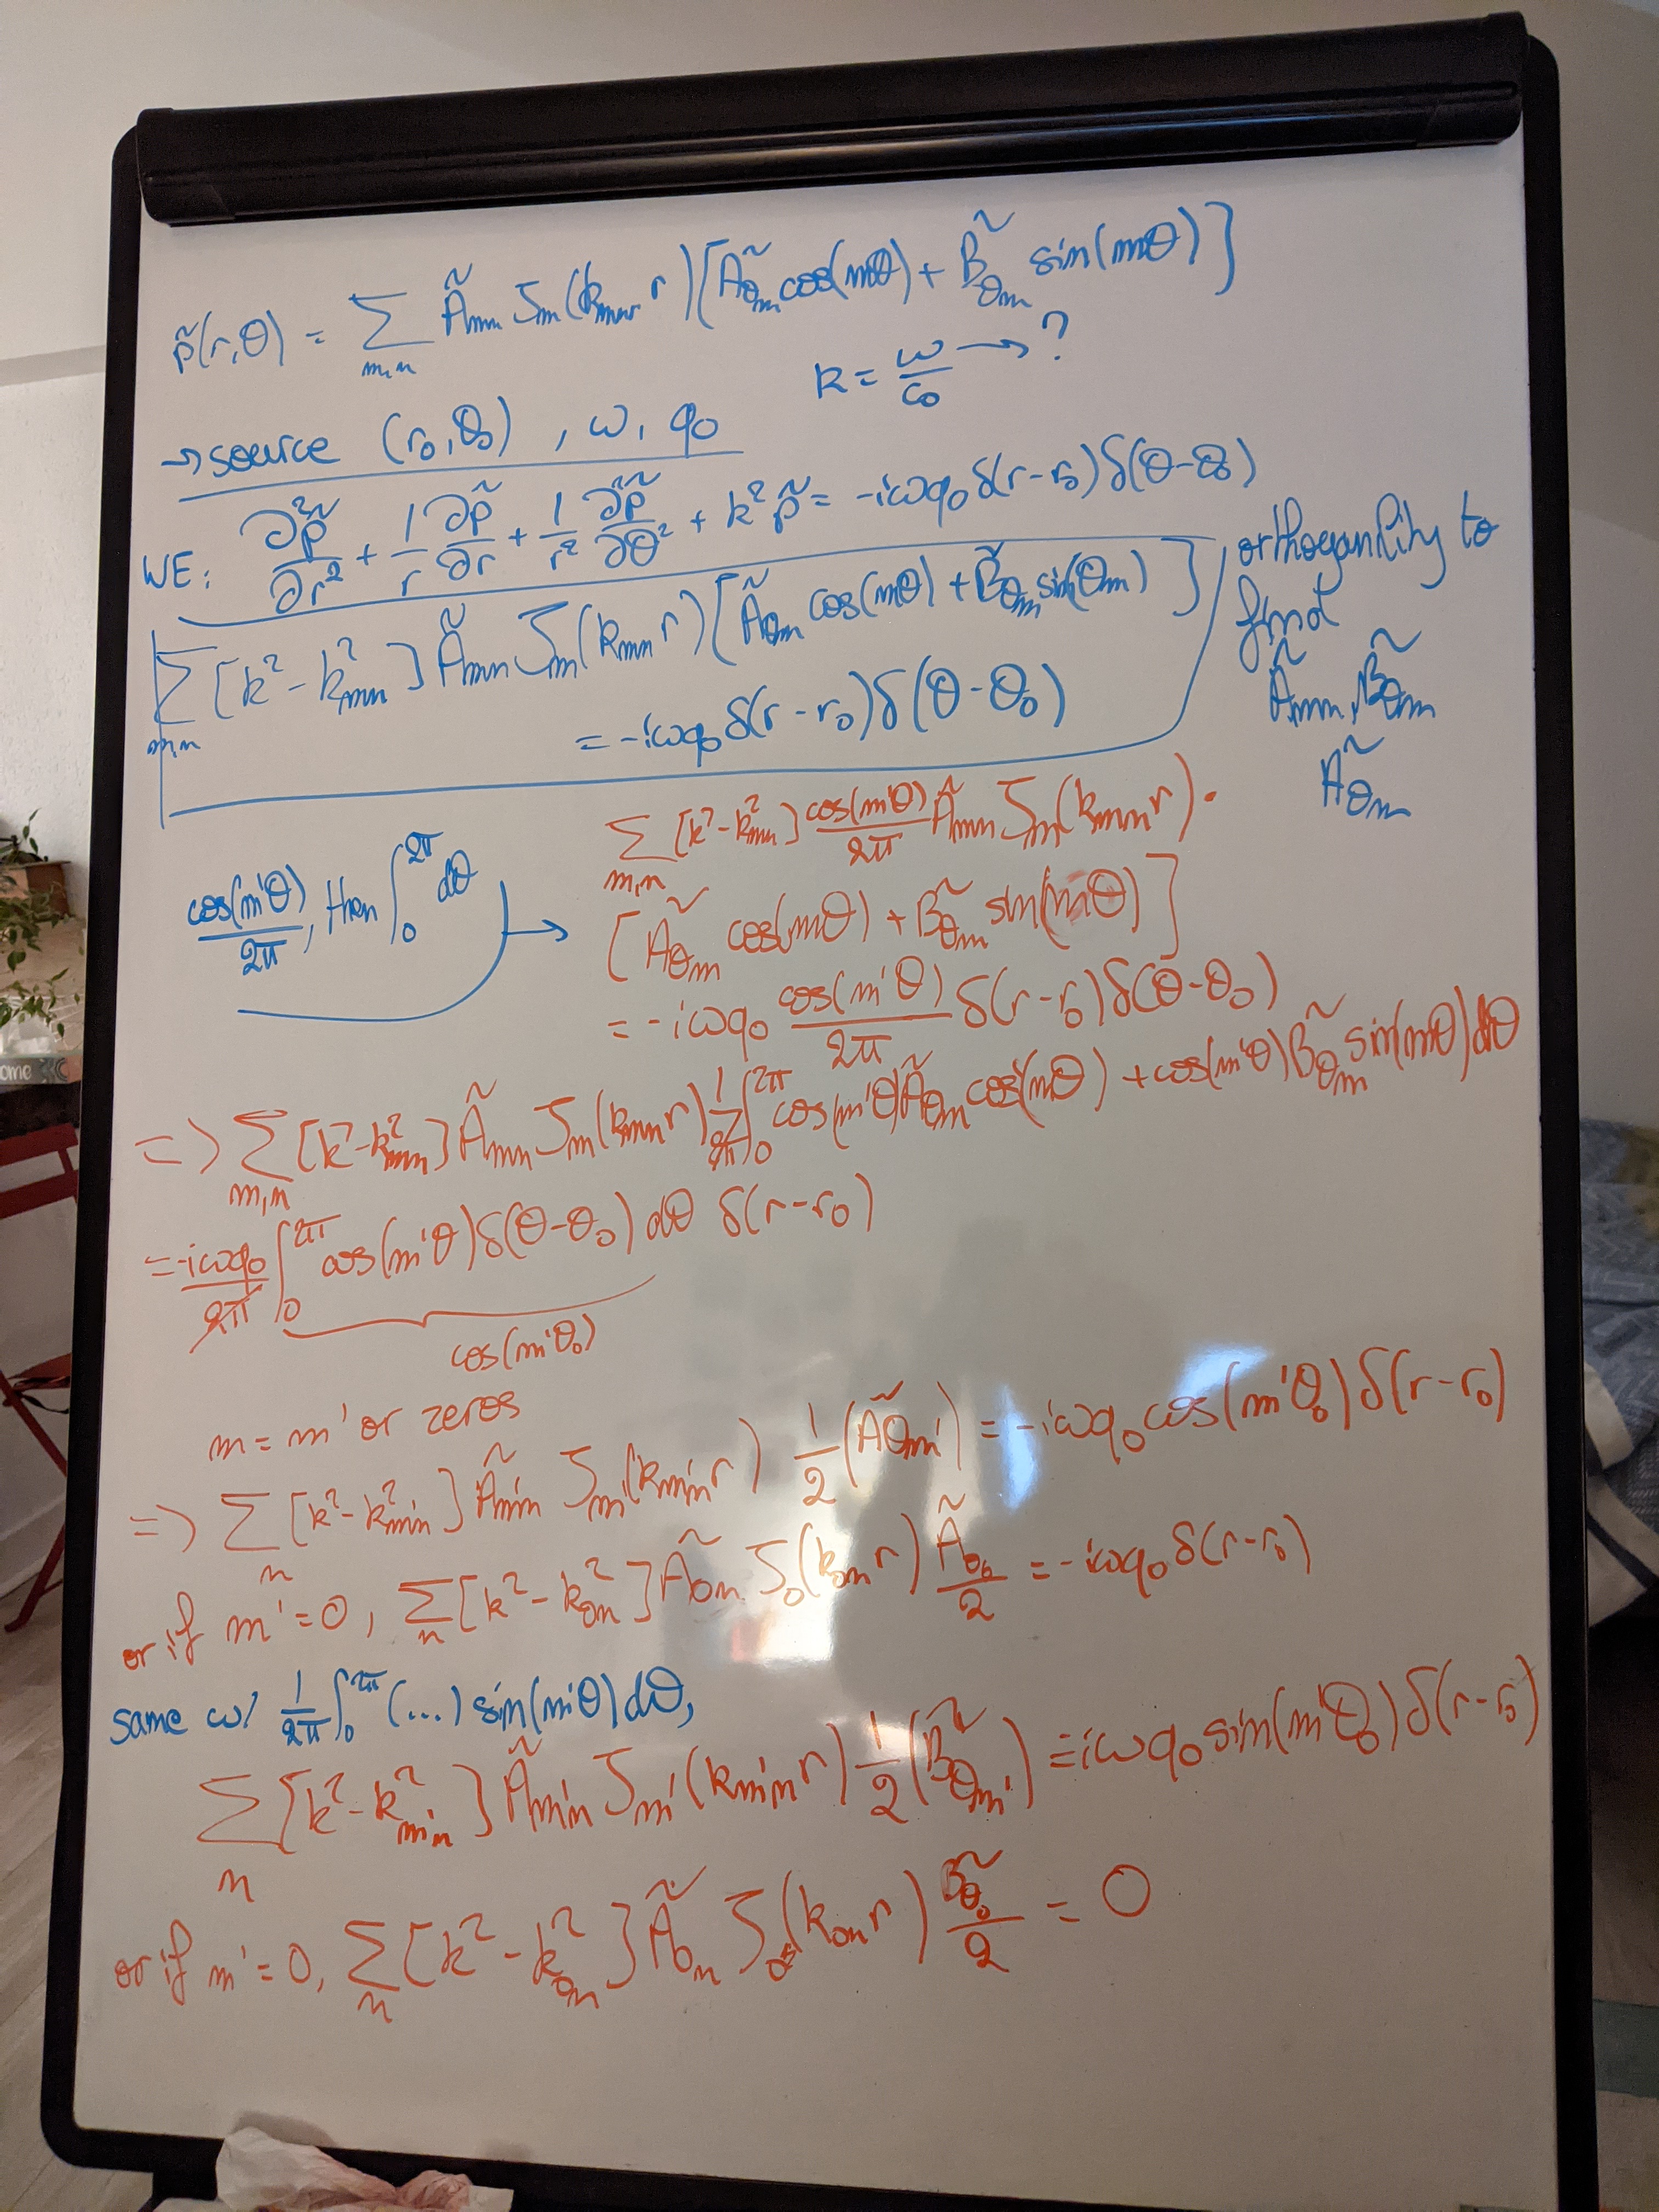 p̃(r,θ) = Σ_{m,n} Ã_{mn} J_m(k_{mn} r)[Ã_{θm} cos(mθ) + B̃_{θm} sin(mθ)]
k = ω/c₀ → ?
→ source (r₀,θ₀), ω, q₀
WE: ∂²p̃/∂r² + 1/r ∂p̃/∂r + 1/r² ∂²p̃/∂θ² + k² p̃ = -iωq₀ δ(r-r₀)δ(θ-θ₀)
Σ_{m,n} [k² - k²_{mn}] Ã_{mn} J_m(k_{mn} r)[Ã_{θm} cos(mθ) + B̃_{θm} sin(θm)]
= -iωq₀ δ(r-r₀)δ(θ-θ₀)
orthoganility to
find
Ã_{mn}, B̃_{θm}
Ã_{θm}
cos(m'θ)/2π, then ∫₀^{2π} dθ →
Σ_{m,n} [k² - k²_{mn}] cos(m'θ)/2π Ã_{mn} J_m(k_{mn} r) ·
[Ã_{θm} cos(mθ) + B̃_{θm} sin(mθ)]
= -iωq₀ cos(m'θ)/2π δ(r-r₀)δ(θ-θ₀)
=> Σ_{m,n} [k² - k²_{mn}] Ã_{mn} J_m(k_{mn} r) 1/2π ∫₀^{2π} cos(m'θ)Ã_{θm} cos(mθ) + cos(m'θ)B̃_{θm} sin(mθ)dθ
= -iωq₀/2π ∫₀^{2π} cos(m'θ)δ(θ-θ₀)dθ δ(r-r₀)
cos(m'θ₀)
m = m' or zeros
=> Σ_n [k² - k²_{m'n}] Ã_{m'n} J_{m'}(k_{m'n} r) 1/2 (Ã_{θm'}) = -iωq₀ cos(m'θ₀)δ(r-r₀)
or if m'=0, Σ_n [k² - k²_{0n}] Ã_{0n} J₀(k_{0n} r) Ã_{θ0}/2 = -iωq₀ δ(r-r₀)
same w/ 1/2π ∫₀^{2π} (...) sin(m'θ)dθ,
Σ_n [k² - k²_{m'n}] Ã_{m'n} J_{m'}(k_{m'n} r) 1/2 (B̃_{θm'}) = iωq₀ sin(m'θ₀)δ(r-r₀)
or if m'=0, Σ_n [k² - k²_{0n}] Ã_{0n} J₀(k_{0n} r) B̃_{θ0}/2 = 0
ome